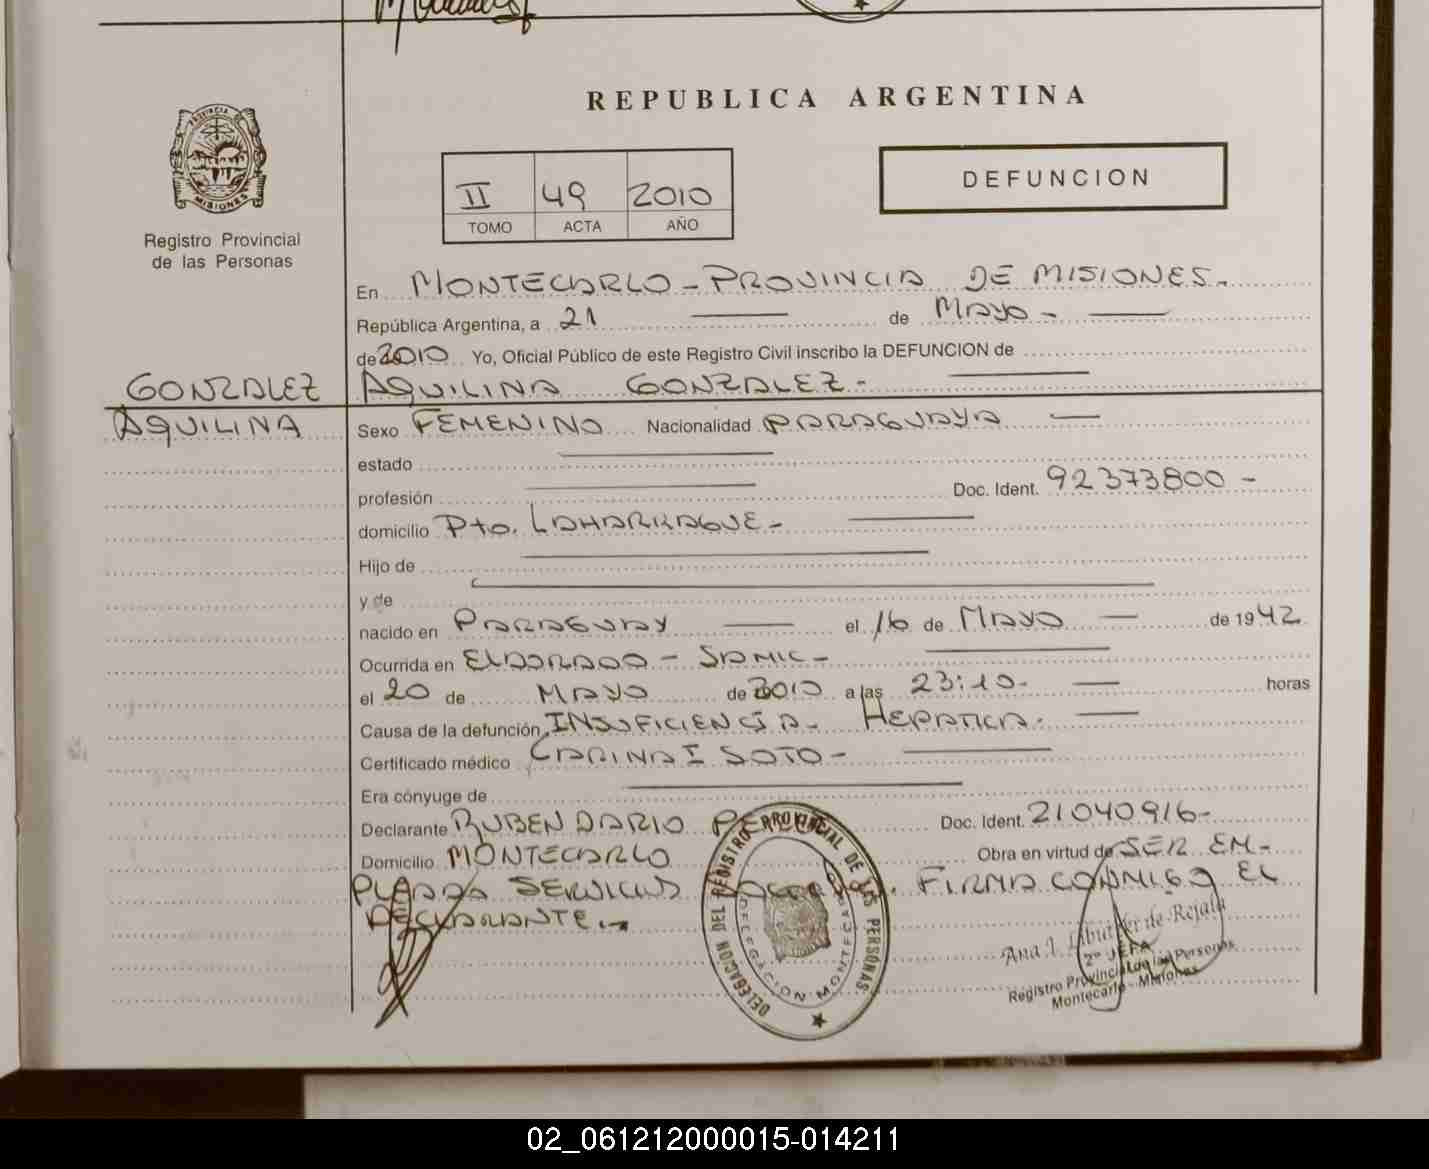 REPUBLICA ARGENTINA
PROVINCIA DE
MISIONES
Registro Provincial
de las Personas
II 49 2010
TOMO ACTA AÑO
DEFUNCION
En MONTECARLO - PROVINCIA DE MISIONES.
República Argentina, a 21 de MAYO -
de 2010 Yo, Oficial Público de este Registro Civil inscribo la DEFUNCION de
GONZALEZ AQUILINA GONZALEZ -
AQUILINA Sexo FEMENINO Nacionalidad PARAGUAYA
estado
profesión Doc. Ident. 92373800 -
domicilio Pto. LAHARRAGUE -
Hijo de
y de
nacido en PARAGUAY el 16 de MAYO de 1942
Ocurrida en ELDORADO - SAMIC -
el 20 de MAYO de 2010 a las 23:10 - horas
Causa de la defunción INSUFICIENCIA - HEPATICA.
Certificado médico CARINA I SOTO -
Era cónyuge de
Declarante RUBEN DARIO Doc. Ident. 21040916 -
Domicilio MONTECARLO Obra en virtud de SER EM-
PLEADO SERVICIOS FIRMA CONMIGO EL
DECLARANTE. -
DELEGACION DEL REGISTRO PROVINCIAL DE LAS PERSONAS
DELEGACION MONTECARLO
Ana I. de Rejala
2º JEFA
Registro Provincial de las Personas
Montecarlo - Misiones
02_061212000015-014211